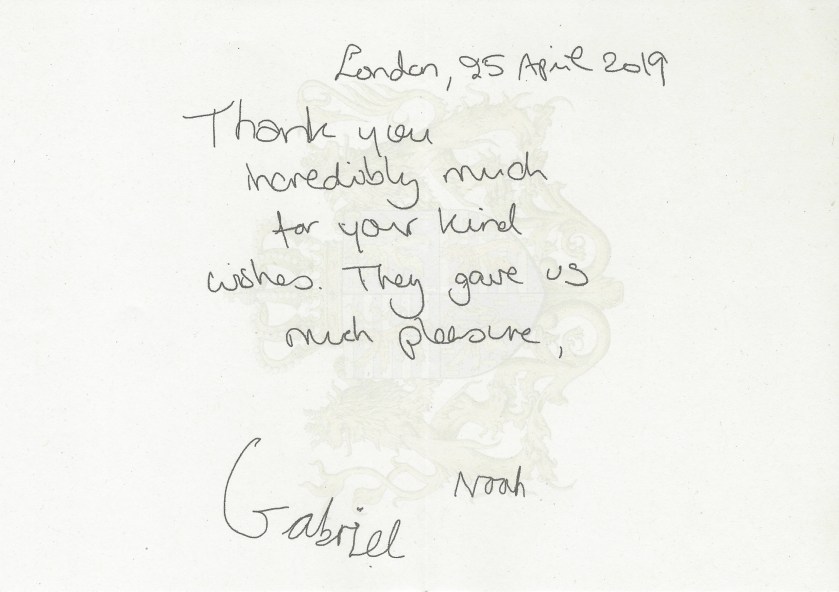 London, 25 April 2019
Thank you
incredibly much
for your kind
wishes. They gave us
much pleasure,
Noah
Gabriel